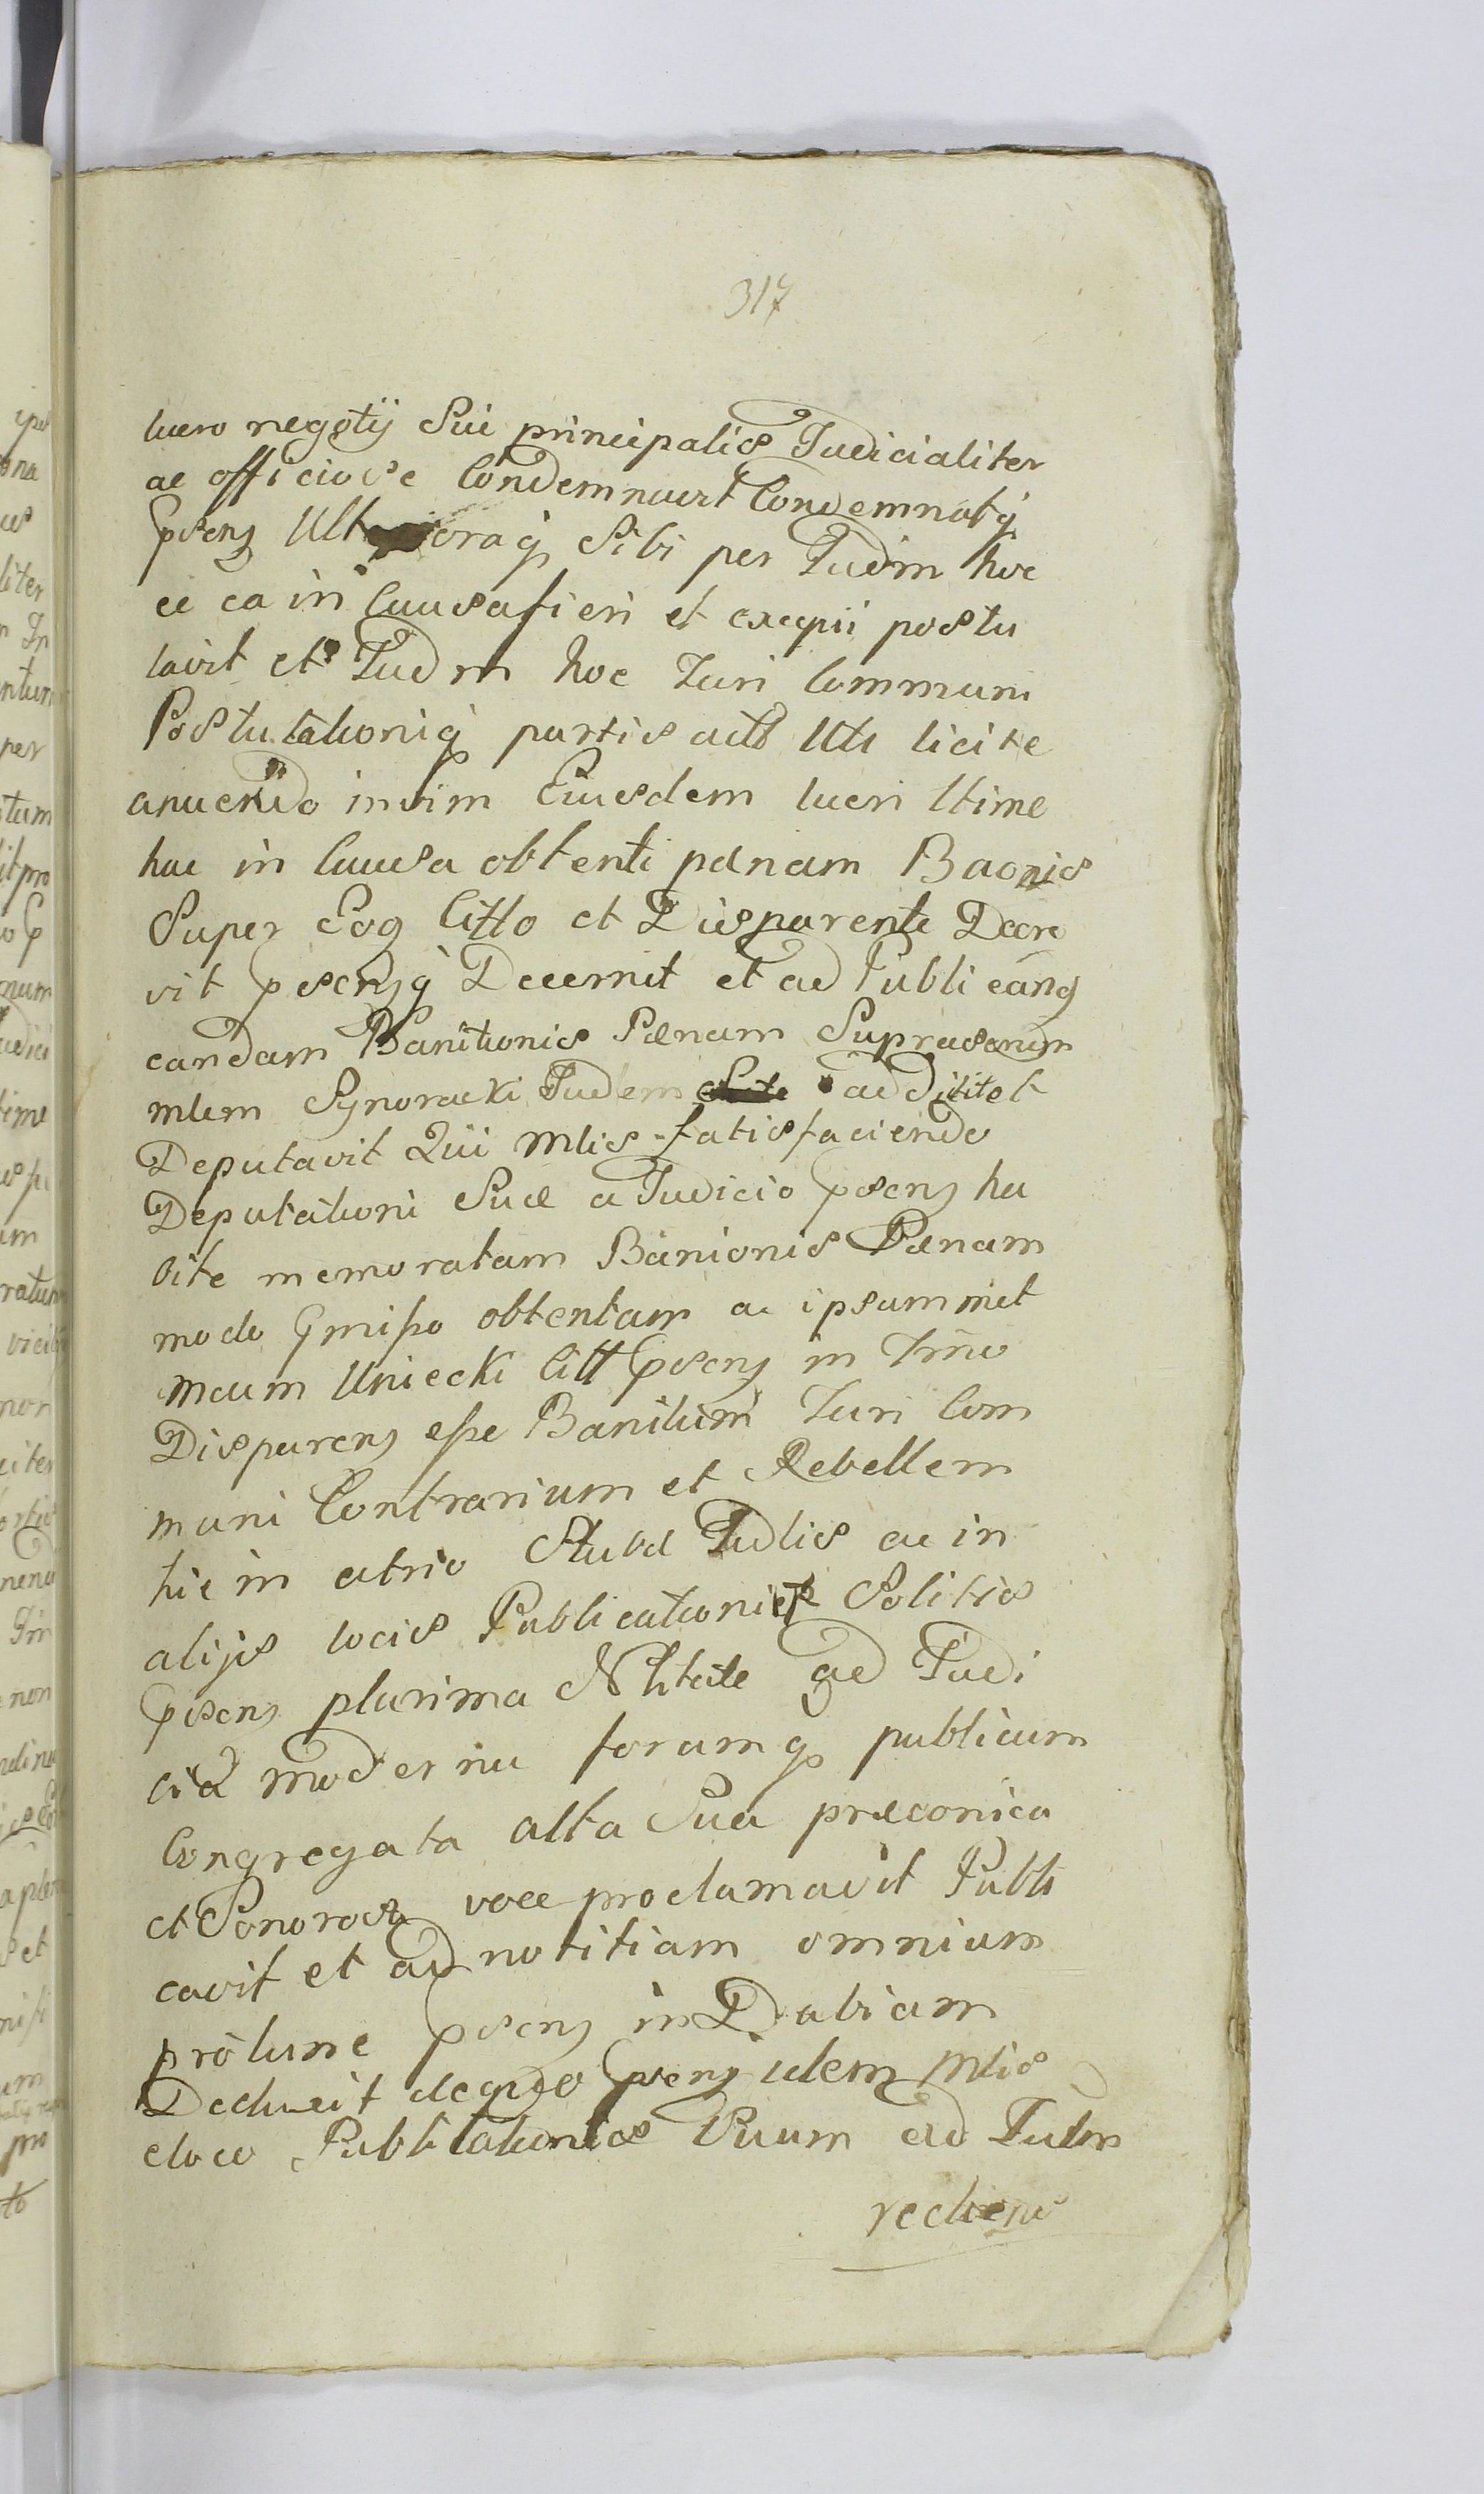 317
lucro negotÿ Sui principalis Judicialiter
ac officiose Condemnavit Condemnatq
psens Ulterioraq Sibi per Judm hoc
ec ea in Causa fieri et exequi postu
lavit et Judm hoc Juri Communi
Postulationiq partis acto Uti licite
anuendo in vim Eiusdem lucri ltime
hac in Causa obtenti pænam Baonis
Super Eog Citto et Disparente Decre
vit psensq Decernit et ad Publicang
eandam Banitionis Pænam Suprascrum
mlem Synoracki Judem ad
Deputavit Qui Mlis satisfaciendo
Deputationi Suæ a Judicio psens ha
bite memoratam Banionis Pænam
modo pmisso obtentam ac ipsummet
Mcum Uniecki Citt psens in Trno
Disparens esse Banitum Juri Com
muni Contrarium et Rebellem
hic in atrio Stubæ Judlis ac in
alijs locis Publicationi Solitis
psens plurima Nlitate ad Judi
cia moderna forumq publicum
Congregata alta Sua præconica
et Sonorosa voce proclamavit Publi
cavit et ad notitiam omnium
protunc psens in Dubiam
Deduxit de quo psens idem Mlis
eloco Publicationis Suum ad Judm
rediens